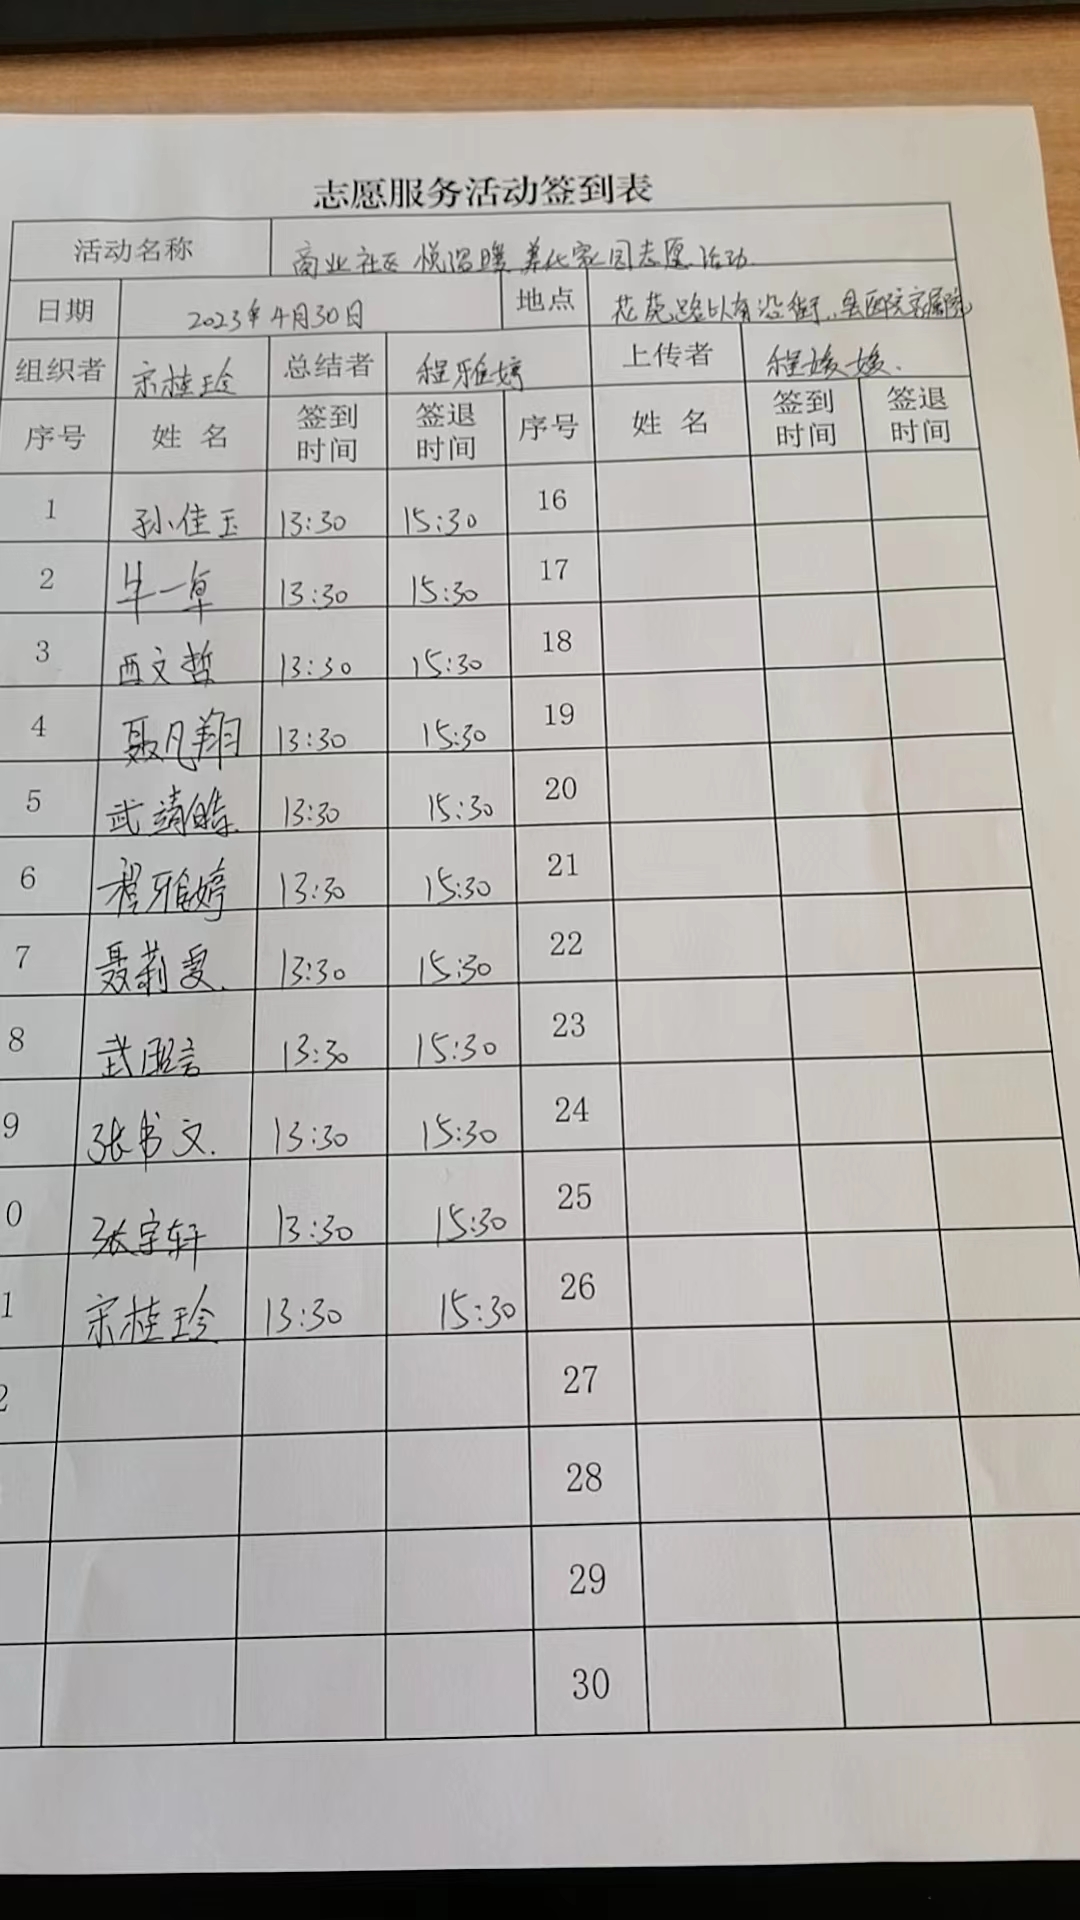 志愿服务活动签到表
活动名称 商业社区 悦温暖 美化家园志愿活动
日期 2023年4月30日 地点 花苑路以南沿街、县医院家属院
组织者 宋桂珍 总结者 程雅婷 上传者 程媛媛.
序号 姓名 签到时间 签退时间 序号 姓名 签到时间 签退时间
1 孙佳玉 13:30 15:30 16
2 牛一卓 13:30 15:30 17
3 西文哲 13:30 15:30 18
4 聂凡翔 13:30 15:30 19
5 武靖皓. 13:30 15:30 20
6 程雅婷 13:30 15:30 21
7 聂莉雯. 13:30 15:30 22
8 武熙言 13:30 15:30 23
9 张书文. 13:30 15:30 24
0 张宇轩 13:30 15:30 25
1 宋桂珍 13:30 15:30 26
2 27
28
29
30